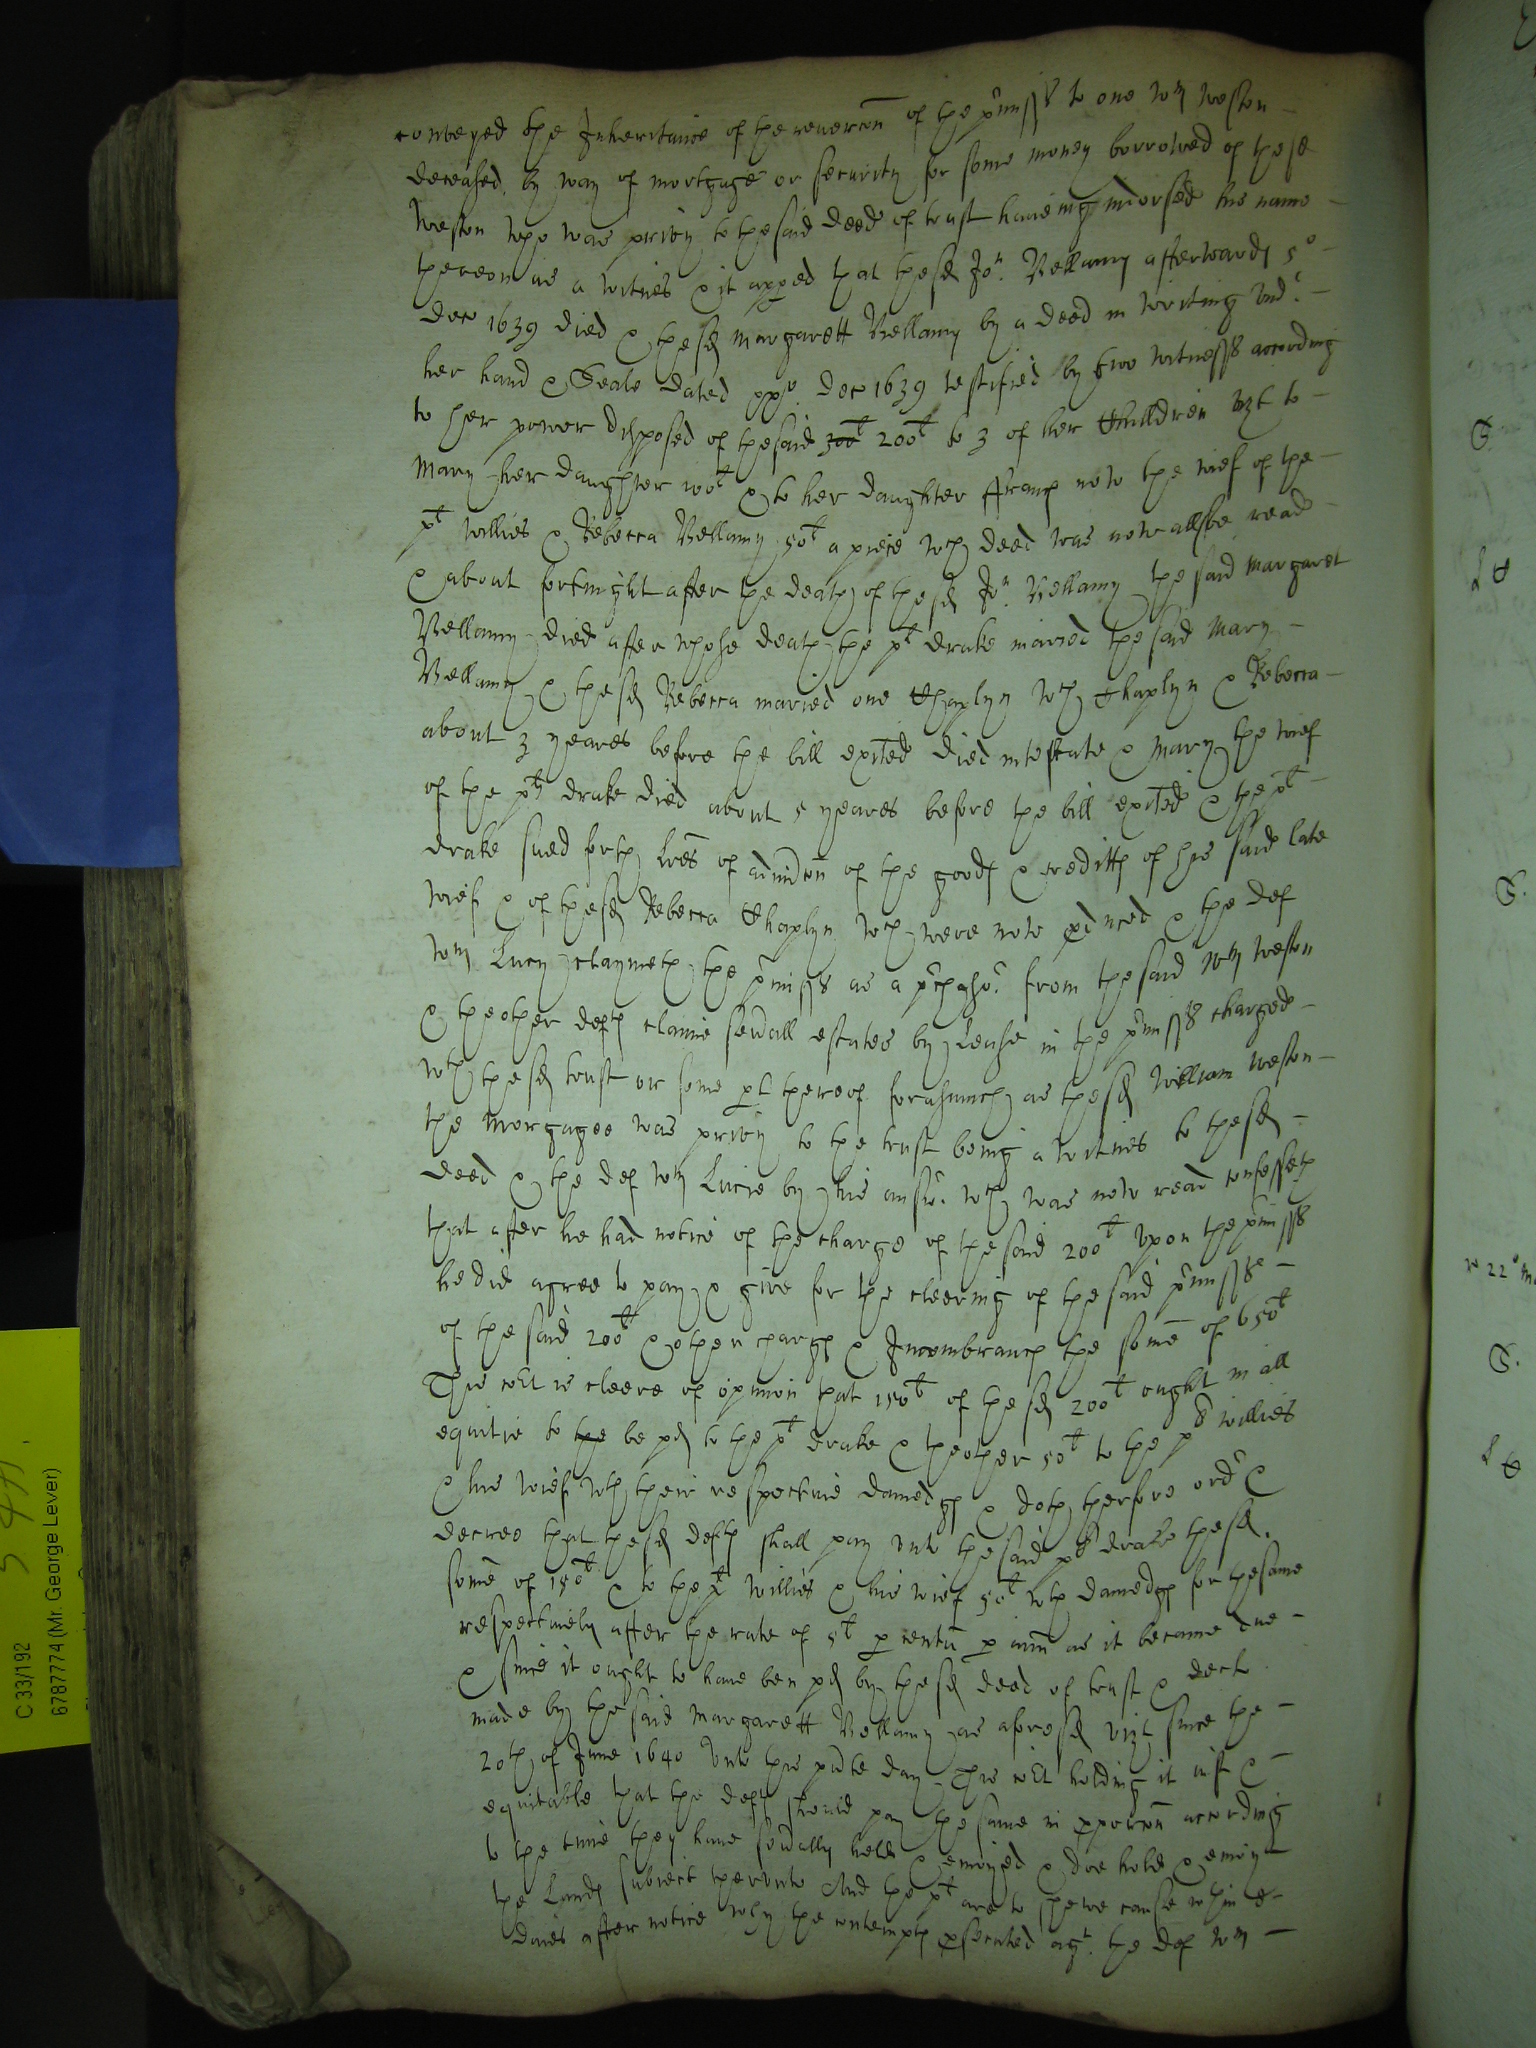 conveyed the Inheritance of the reuercōn of the p̃miss͛ to one Wm Weston
deceased by way of mortgage or security for some money borrowed of the sd
Weston who was privy to the said deed of trust haueing indorsed his name
thereon as a witnes & it appred that the sd Jon. Vellamy afterwards 5o
Dec 1639 died & the sd Margarett Vellamy by a deed in writing vnd'.
her hand & Seale dated xxo. Dec 1639 testified by two witness͛ according
to her power disposed of the said 300l 200l to 3 of her Chilldren vizt to
Mary her daughter 100l & to her daughter ffrancs now the wief of the
pt Willies & Rebecca Vellamy 50l a piece wch deed was now allsoe read
& about fortnight after the death of the sd Jon. Vellamy the said Margaret
Vellamy died after whose death the pt drake maried the said Mary
Vellamy & the sd Rebecca maried one Chaplyn wch Chaplyn & Rebecca
about 3 yeares before the bill exited died intestate & Mary the wief
of the pts drake died about 5 yeares before the bill exited & the pt
drake sued forth lres of admiñcõn of the goods & creditts of his said late
wief & of the sd Rebecca Chaplyn wch were now pduced & the def
Wm Lucy claymeth the p̃miss͛ as a p'chaser. from the said Wm Weston
& the other defts claime seũall estates by Lease in the p̃miss͛ charged
wth the sd trust or some pt thereof forasmuch as the sd William Weston
the Morgagee was privy to the trust being a witnes to the sd
deed & the def Wm Lucie by his answ'. wch was now read confesseth
that after he had notice of the charge of the said 200l vpon the p̃miss͛
he did agree to pay & give for the cleering of the said p̃miss͛
of the said 200l & other chargs & Incombrancs the some of 650l
This cot is cleere of opinion that 150l of the sd 200l ought in all
equitie to the be pd to the pt drake & the other 50l to the pt Willies
& his wief wth their respectiue damedgs & doth therfore ord' &
decree that the sd defts shall pay vnto the said pt drake the sd
some of 150l & to the pt Willies & his wief 50l wth damedgs for the same
respectiuely after the rate of 5l p centũ p anñ as it became due
& since it ought to haue ben pd by the sd deed of trust & deed
made by the said Margarett Vellamy as aforesd vizt since the
20th of June 1640 vnto this p̃nte day This cot holding it iust &
equitable that the defts should pay the same in pporcõn according
to the time they haue seũally held & enioyed & doe hold & enioy
the Lands subiect therunto And the pts are to shewe cause wthin 8
daies after notice why the contempts psecuted agt. the def Wm
C 33/192
6787774 (Mr. George Lever)